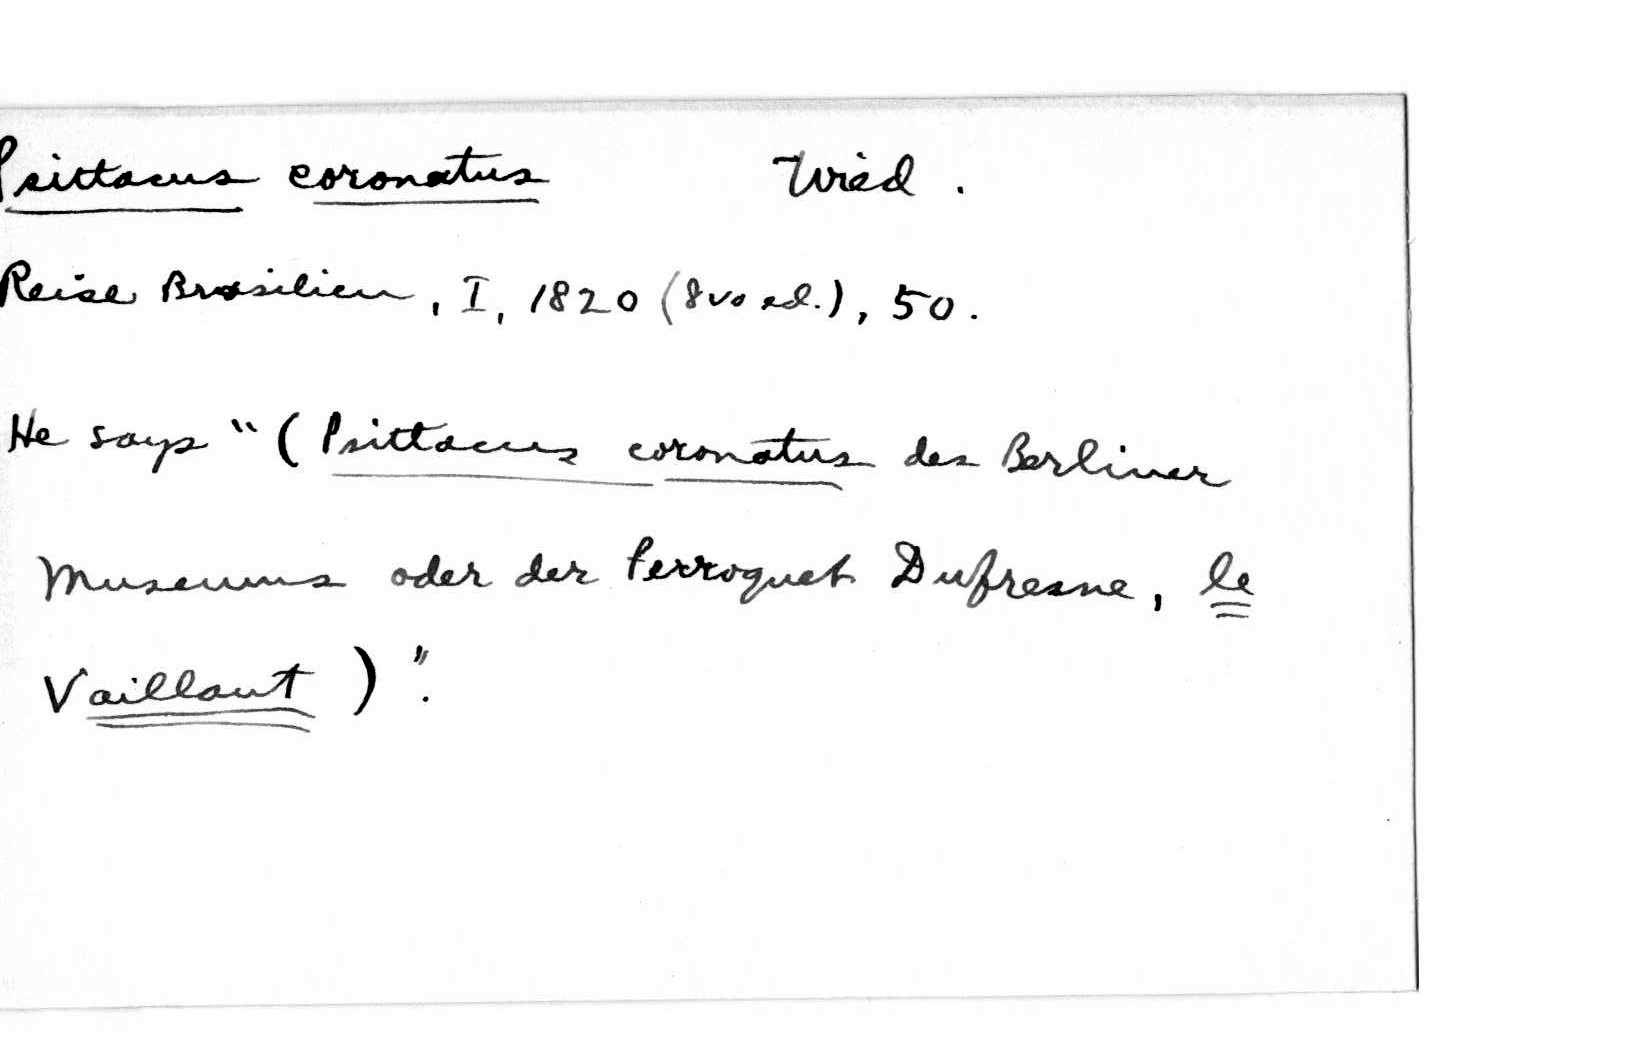 Psittacus coronatus Wied.
Reise Brasilien, I, 1820 (8vo ed.), 50.
He says "(Psittacus coronatus des Berliner
Museums oder der Perroquet Dufresne, le
Vaillant)".